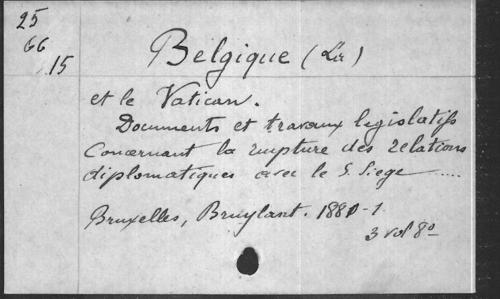 25
66
15
Belgique (La)
et le Vatican.
Documents et travaux legislatifs
Concernant la rupture des relations
diplomatiques avec le S. Siege .....
Bruxelles, Bruylant. 1880-1
3 vol 8º